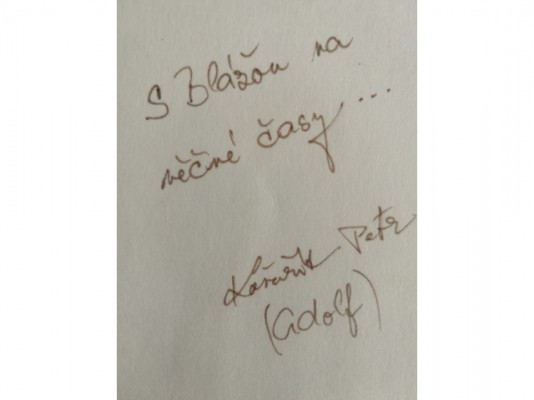 S Blážou na
věčné časy...
Petr
(Adolf)